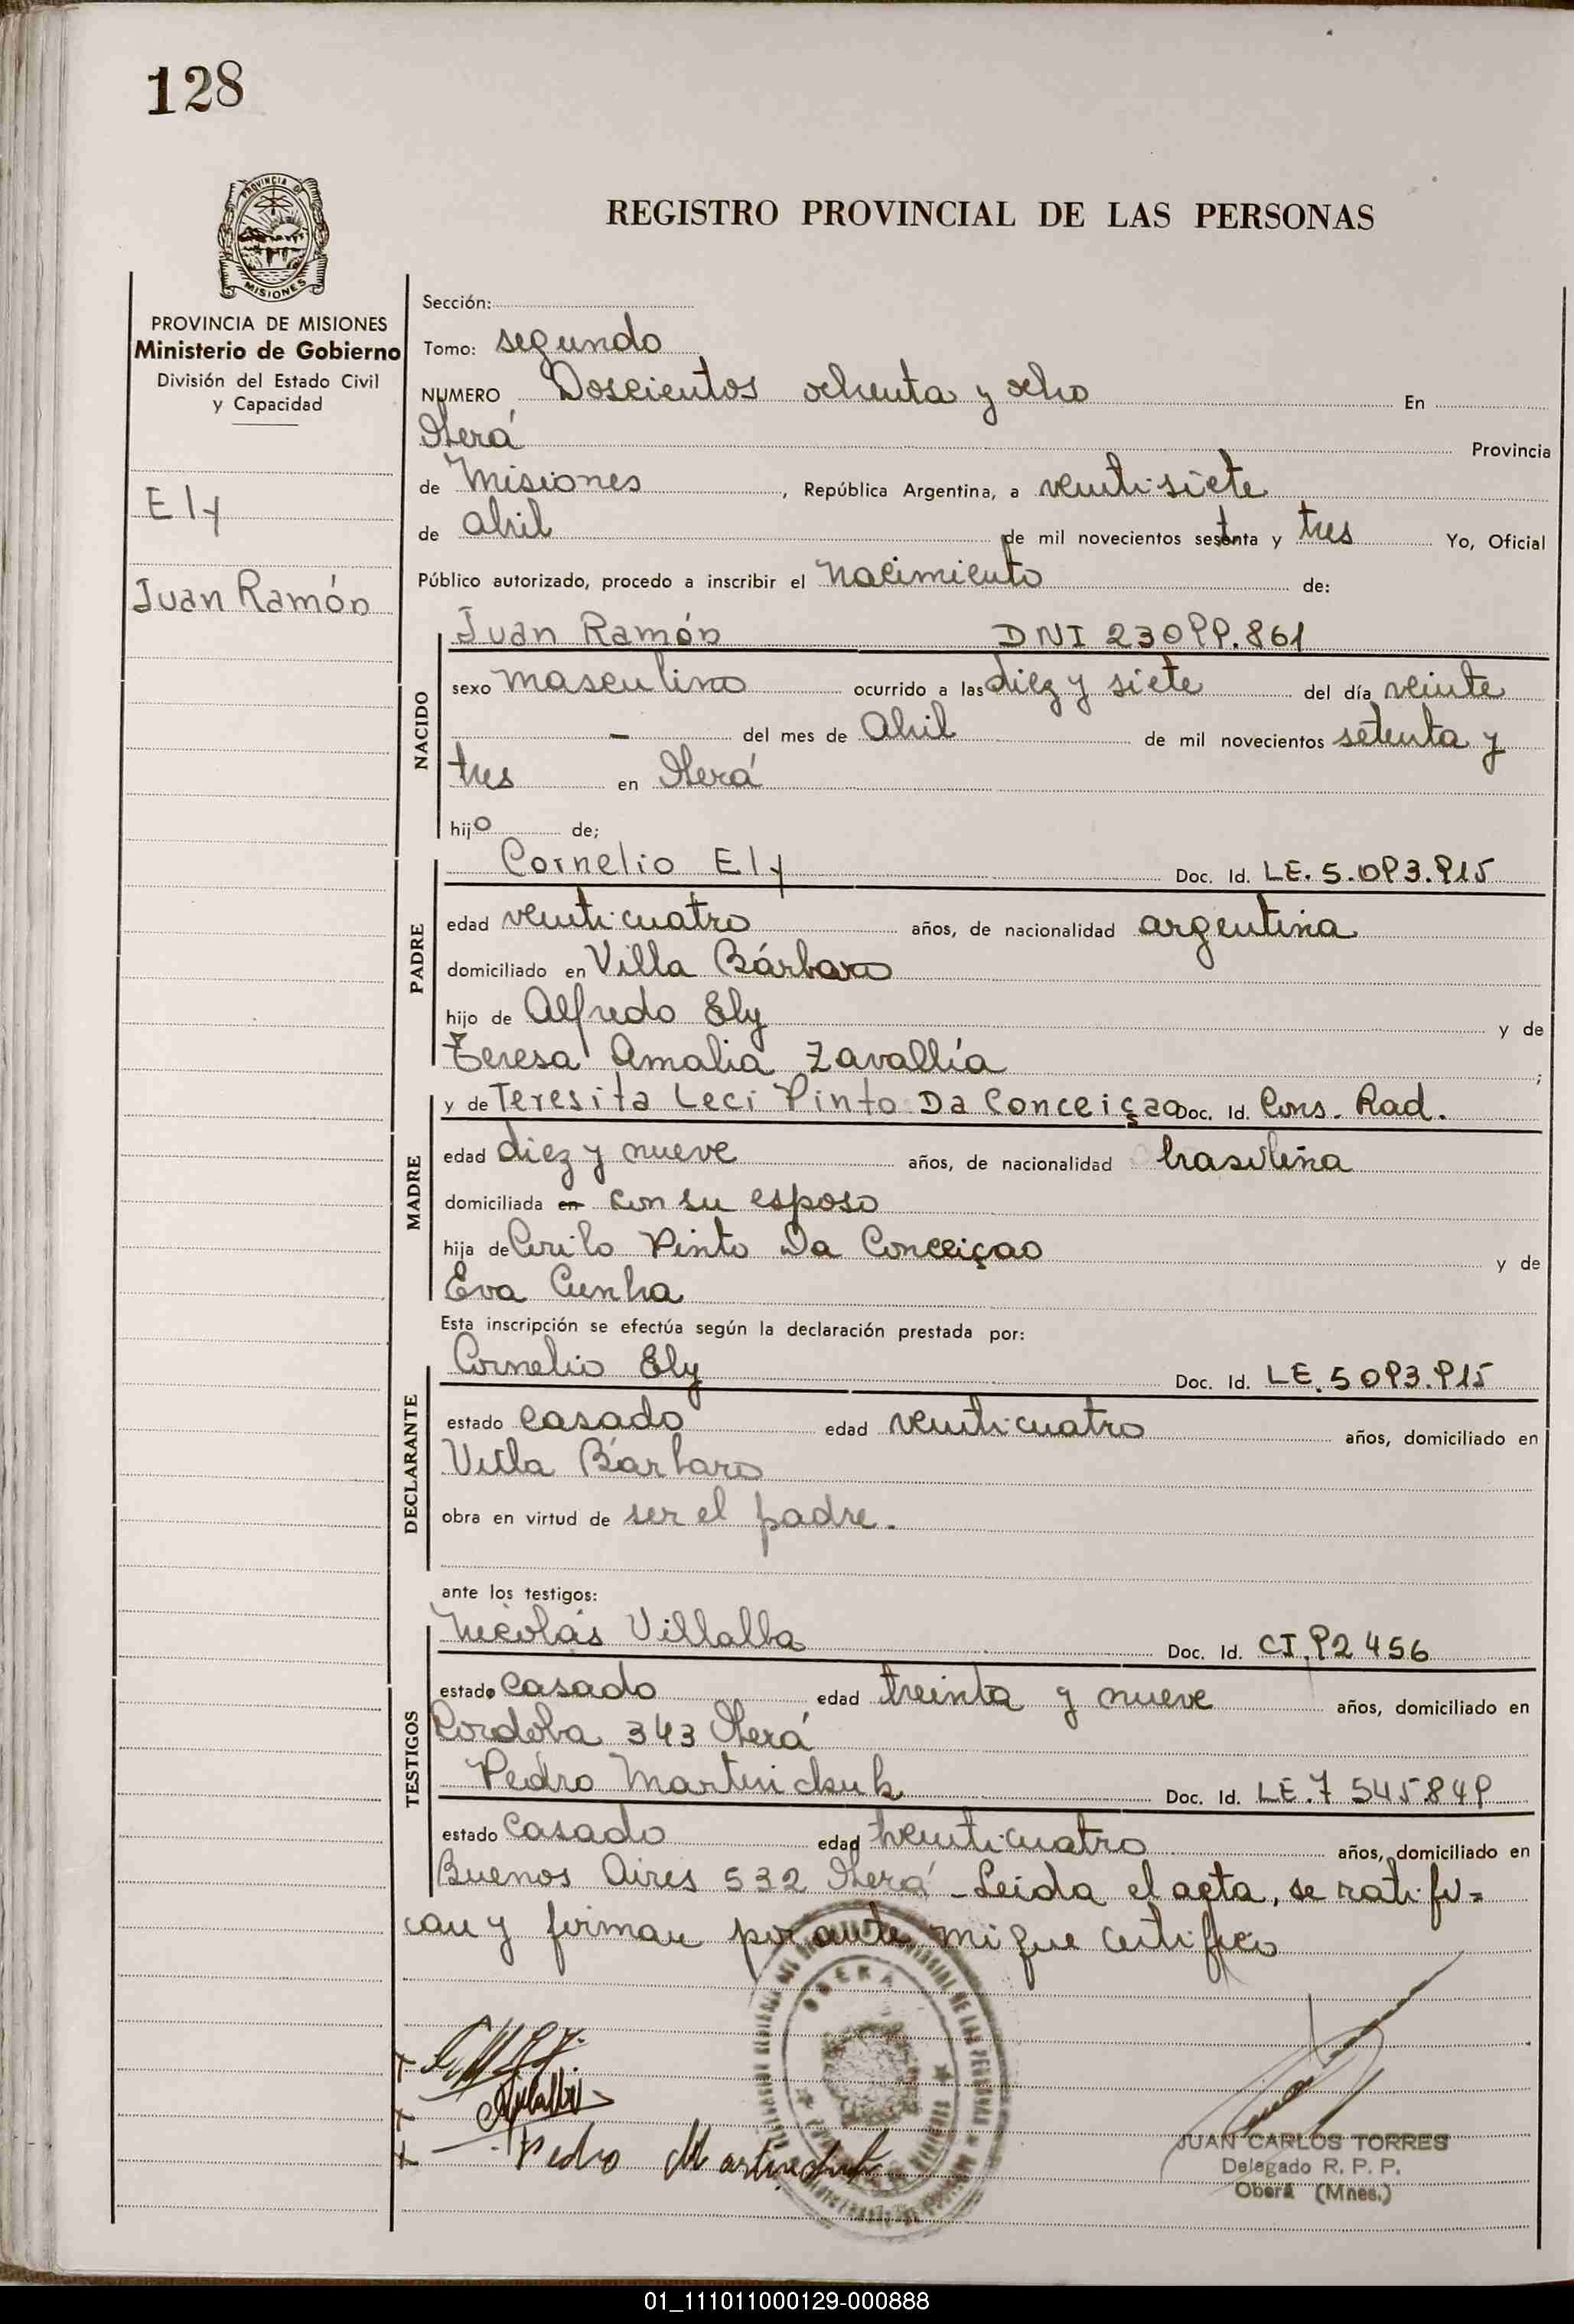 128
PROVINCIA DE
MISIONES
REGISTRO PROVINCIAL DE LAS PERSONAS
PROVINCIA DE MISIONES
Ministerio de Gobierno
División del Estado Civil
y Capacidad
Ely
Juan Ramón
Sección:
Tomo: segundo
NUMERO Doscientos ochenta y ocho En
Oberá Provincia
de Misiones, República Argentina, a veinti-siete
de abril de mil novecientos setenta y tres Yo, Oficial
Público autorizado, procedo a inscribir el nacimiento de:
NACIDO
Juan Ramón DNI 23099.861
sexo masculino ocurrido a las diez y siete del día veinte
- del mes de Abril de mil novecientos setenta y
tres en Oberá
hijo de;
PADRE
Cornelio Ely Doc. Id. LE. 5.093.915
edad veinticuatro años, de nacionalidad argentina
domiciliado en Villa Bárbaro
hijo de Alfredo Ely y de
Teresa Amalia Zavallía ;
MADRE
y de Teresita Leci Pinto Da Conceiçao Doc. Id. Cons. Rad.
edad diez y nueve años, de nacionalidad brasileña
domiciliada en con su esposo
hija de Cirilo Pinto Da Conceiçao y de
Eva Cunha
Esta inscripción se efectúa según la declaración prestada por:
DECLARANTE
Cornelio Ely Doc. Id. LE. 5093.915
estado casado edad veinticuatro años, domiciliado en
Villa Bárbaro
obra en virtud de ser el padre.
ante los testigos:
TESTIGOS
Nicolás Villalba Doc. Id. CI.92456
estado casado edad treinta y nueve años, domiciliado en
Cordoba 343 Oberá
Pedro Martinichuk Doc. Id. LE.7 545.849
estado casado edad veinticuatro años, domiciliado en
Buenos Aires 532 Oberá - Leida el acta, se ratifi=
can y firman por ante mi que certifico
OBERA
Pedro Martinichuk
JUAN CARLOS TORRES
Delegado R. P. P.
Oberá (Mnes.)
01_111011000129-000888